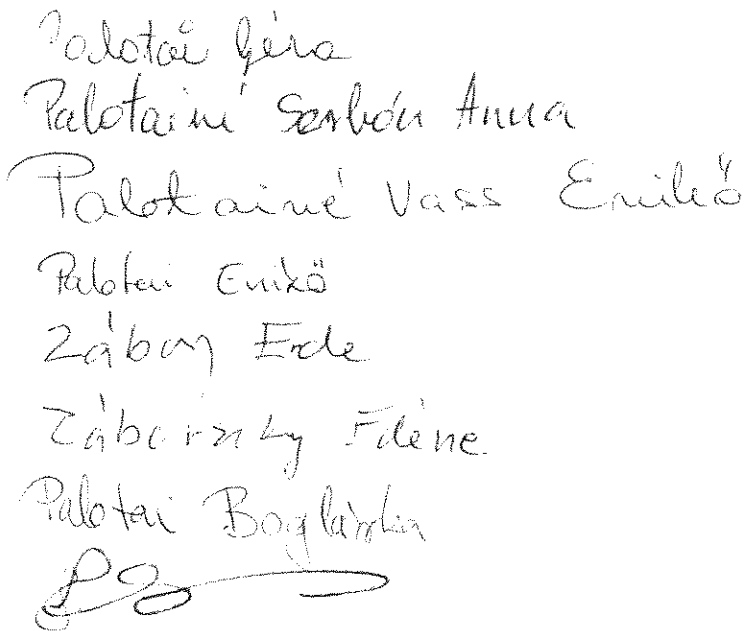 Palotai Géza
Palotainé Serbán Anna
Palotainé Vass Enikő
Palotai Enikő
Zábory Erde
Záborszky Edéné
Palotai Boglárka